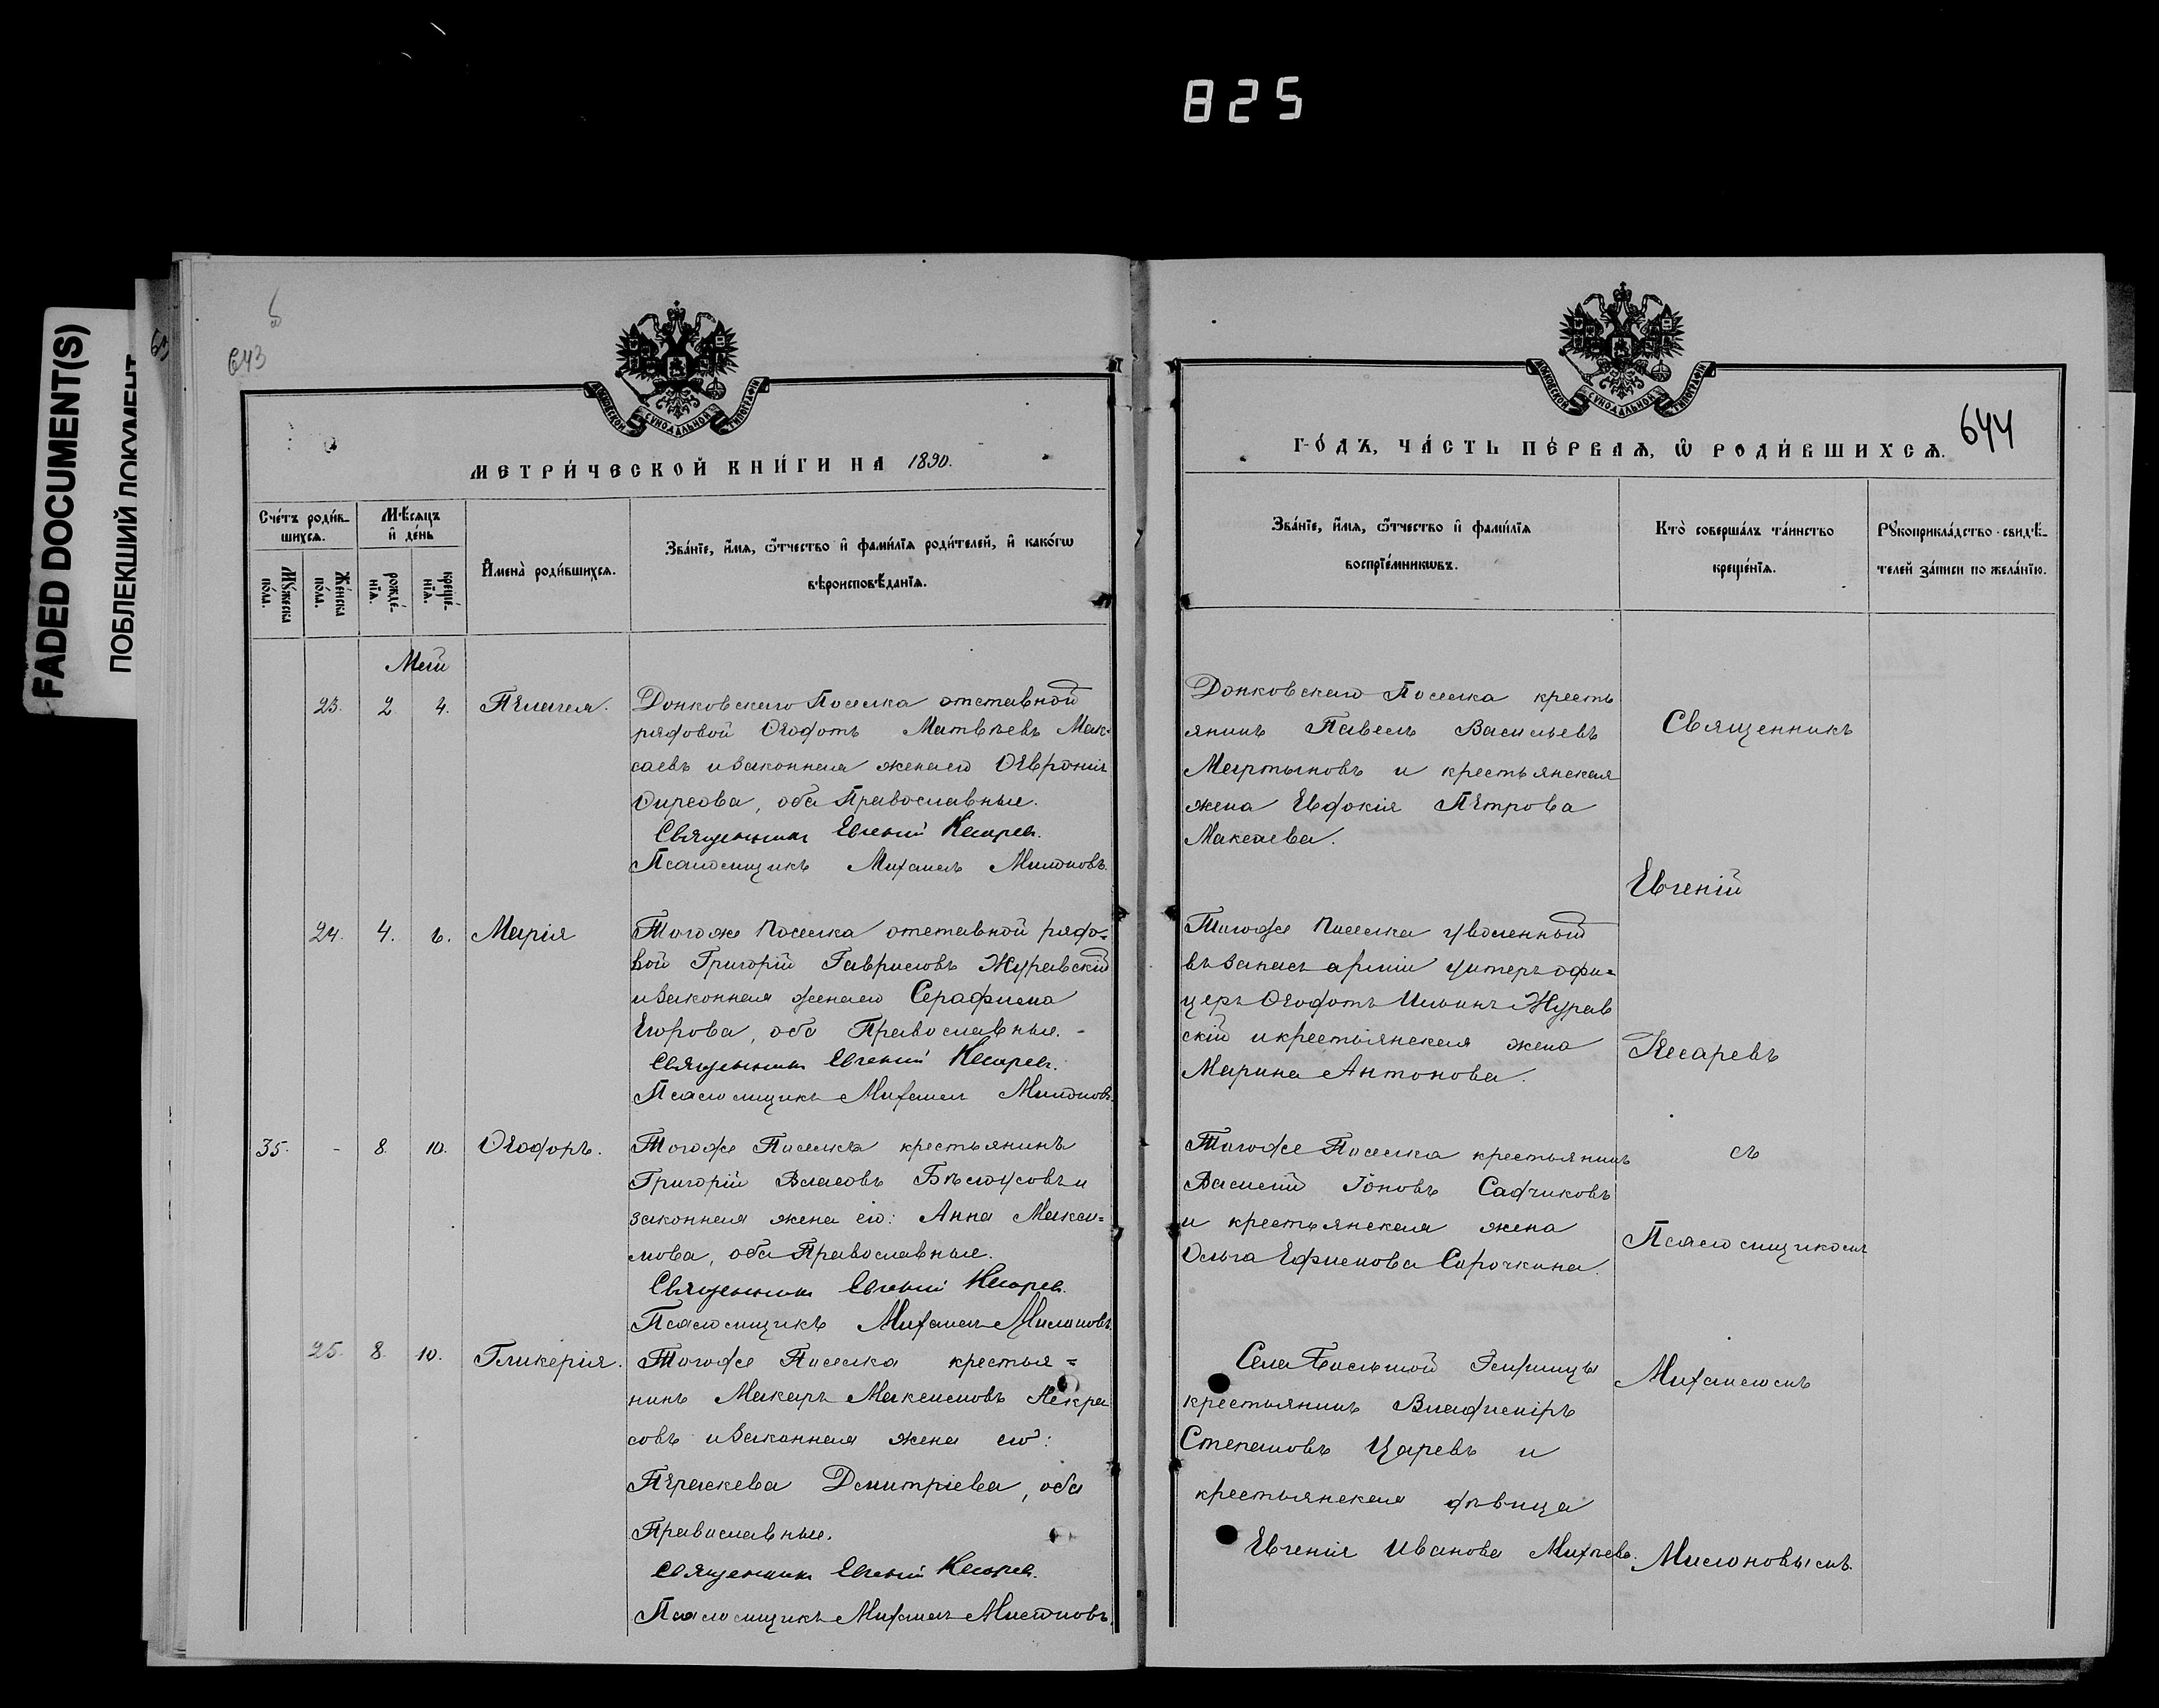 825
FADED DOCUMENT(S)
ПОБЛЕКШИЙ ДОКУМЕНТ
643
МОСКОВСКОЙ СѴНОДАЛЬНОЙ ТИПОГРАФІИ
МЕТРИ́ЧЕСКОЙ КНИ́ГИ НА 1890.
Сче́тъ роди́в-
шихсѧ.
Мѣ́сяцъ
и҆ де́нь
Мꙋ́жеска
по́ла.
Же́нска
по́ла.
рожде́-
нїѧ.
креще́-
нїѧ.
И҆мена̀ роди́вшихсѧ.
Зва́нїе, и҆́мѧ, ѻ҆́тчество и҆ фами́лїѧ роди́телей, и҆ како́гѡ
вѣроисповѣ́данїѧ.
Май
23. 2 4. Пелагея.
Донковскаго Поселка отставной
рядовой Ѳеодотъ Матвѣевъ Мак-
саевъ и законная жена его Февронія
Фирсова, оба Православные.
Священникъ Евгеній Кесарев.
Псаломщикъ Михаилъ Милоновъ.
24. 4. 6. Марія
Тогоже поселка отставной рядо-
вой Григорій Гавриловъ Журавскій
и законная жена его Серафима
Егорова, оба Православные. -
Священникъ Евгеній Кесарев.
Псаломщикъ Михаилъ Милоновъ.
35. - 8. 10. Ѳеодоръ.
Тогоже Поселка крестьянинъ
Григорій Власовъ Бѣлоусовъ и
законная жена его: Анна Макси-
мова, оба Православные.
Священникъ Евгеній Кесарев.
Псаломщикъ Михаилъ Милоновъ.
25. 8. 10. Гликерія.
Тогоже Поселка крестья-
нинъ Макаръ Максимовъ Некра
совъ и законная жена его:
Параскева Дмитріева, оба
Православные.
Священникъ Евгеній Кесарев.
Псаломщикъ Михаилъ Милоновъ.
МОСКОВСКОЙ СѴНОДАЛЬНОЙ ТИПОГРАФІИ
644
ГО́ДЪ, ЧА́СТЬ ПЕ́РВАѦ, Ѡ҆ РОДИ́ВШИХСѦ.
Зва́нїе, и҆́мѧ, ѻ҆́тчество и҆ фами́лїѧ
воспрїе́мникѡвъ.
Кто̀ соверша́лъ та́инство
креще́нїѧ.
Рꙋкоприкла́дство свидѣ́-
телей за́писи по жела́нїю.
Донковскаго Поселка кресть
янинъ Павелъ Васильевъ
Мартыновъ и крестьянская
жена Евдокія Петрова
Максаева.
Тогоже поселка уволенный
въ запасъ арміи унтеръ офи-
церъ Ѳеодотъ Ильинъ Журав
скій и крестьянская жена
Марина Антонова.
Тогоже Поселка крестьянинъ
Василій Іоновъ Садчиковъ
и крестьянская жена
Ольга Ефимова Сорочкина.
Села Большой
крестьянинъ Владиміръ
Степановъ Царевъ и
крестьянская дѣвица
Евгенія Иванова Михѣева.
Священникъ
Евгеній
Кесаревъ
съ
Псаломщикомъ
Михаиломъ
Милоновымъ.